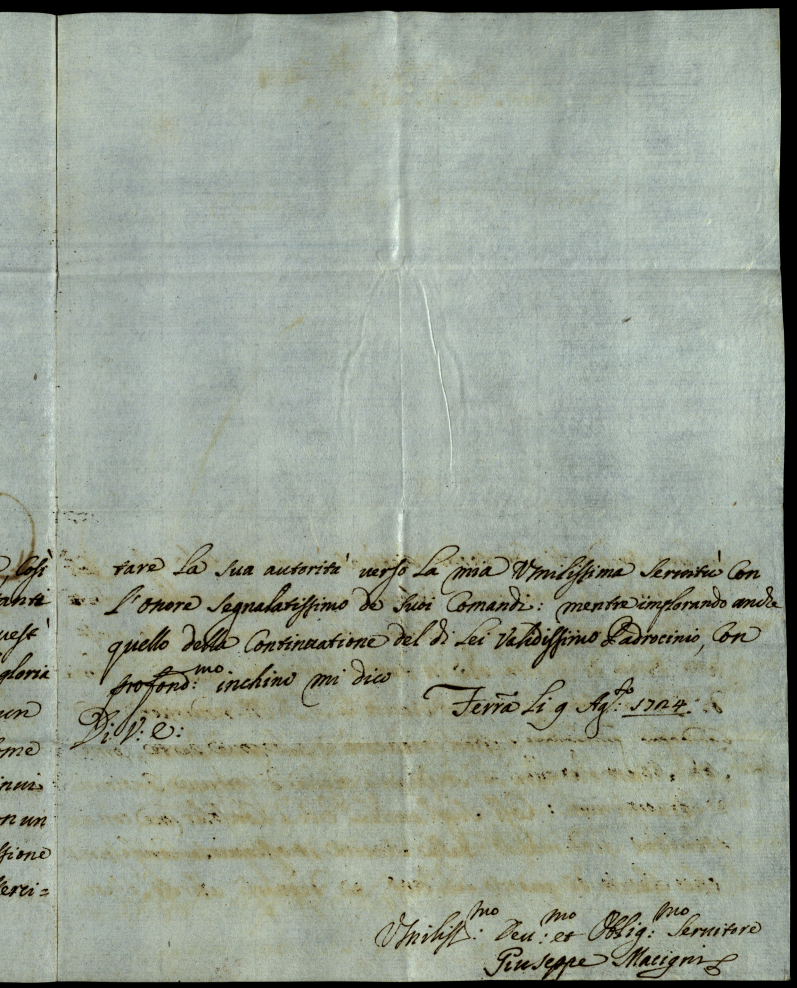 , Così
anti
uest'
gloria
un
ome
inui-
on un
ssione
serci=
rare La sua autorità verso La mia Vmilissima Seruitù Con
L'onore Segnalatissimo de Suoi Comandi: mentre implorando anche
quello della Continuatione del di Lei Validissimo Padrocinio, Con
profond:mo inchino mi dico
Ferra Li 9 Ag:to 1724
Di V: E:
Vmiliss:mo Deu:mo et Oblig:mo Seruitore
Giuseppe Macigni